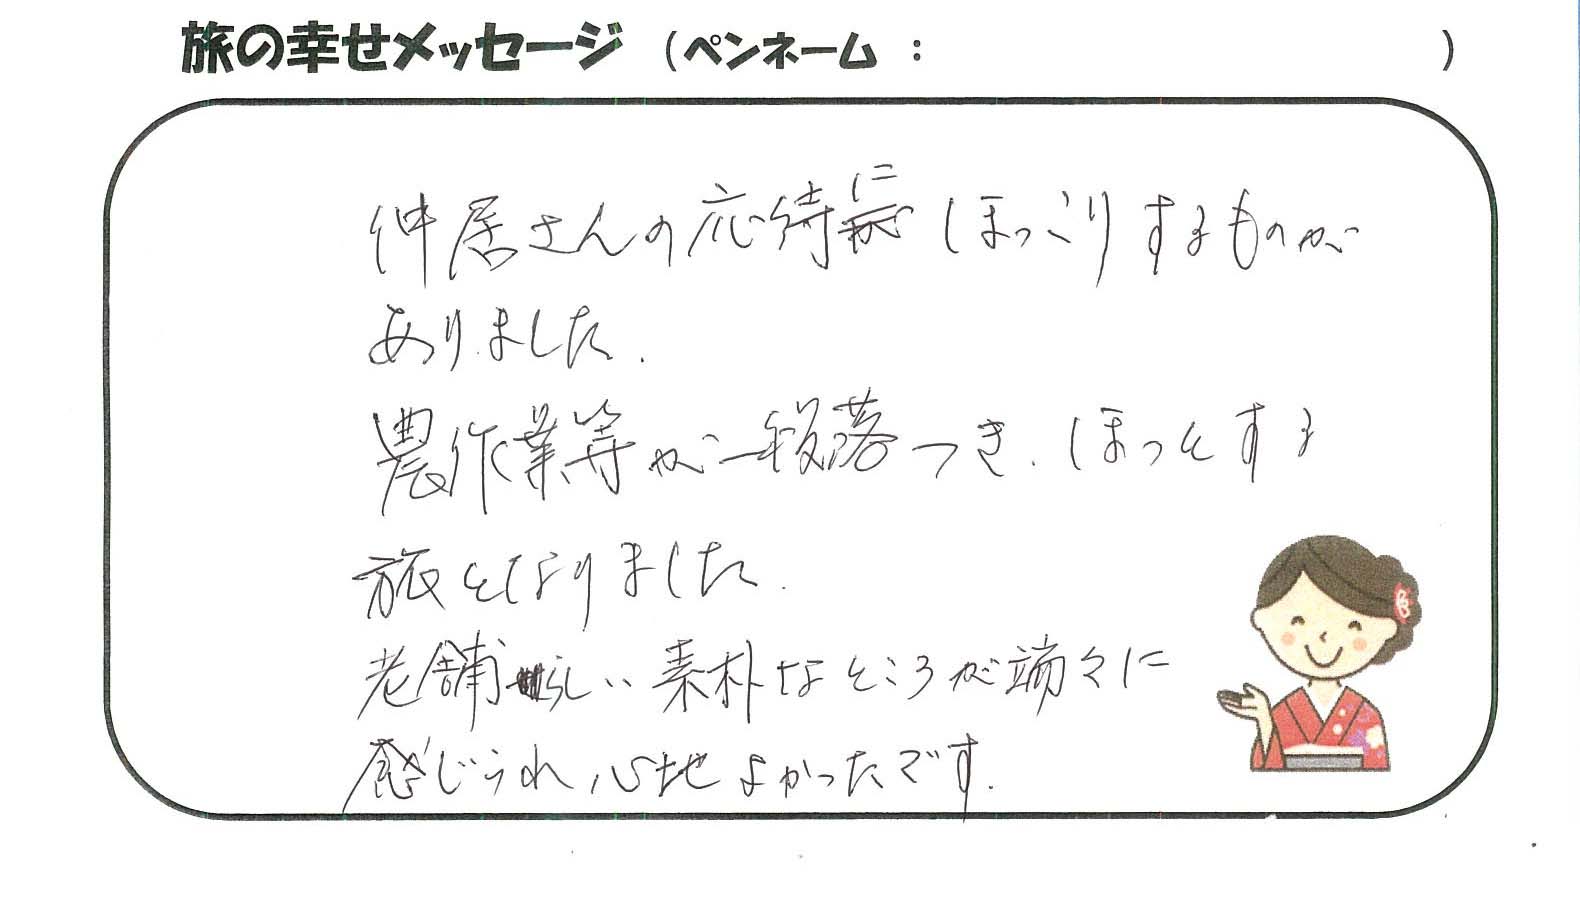 旅の幸せメッセージ (ペンネーム : )
仲居さんの応待にほっこりするものが
ありました.
農作業等が一段落つき.ほっとする
旅となりました.
老舗らしい素朴なところが端々に
感じられ心地よかったです.